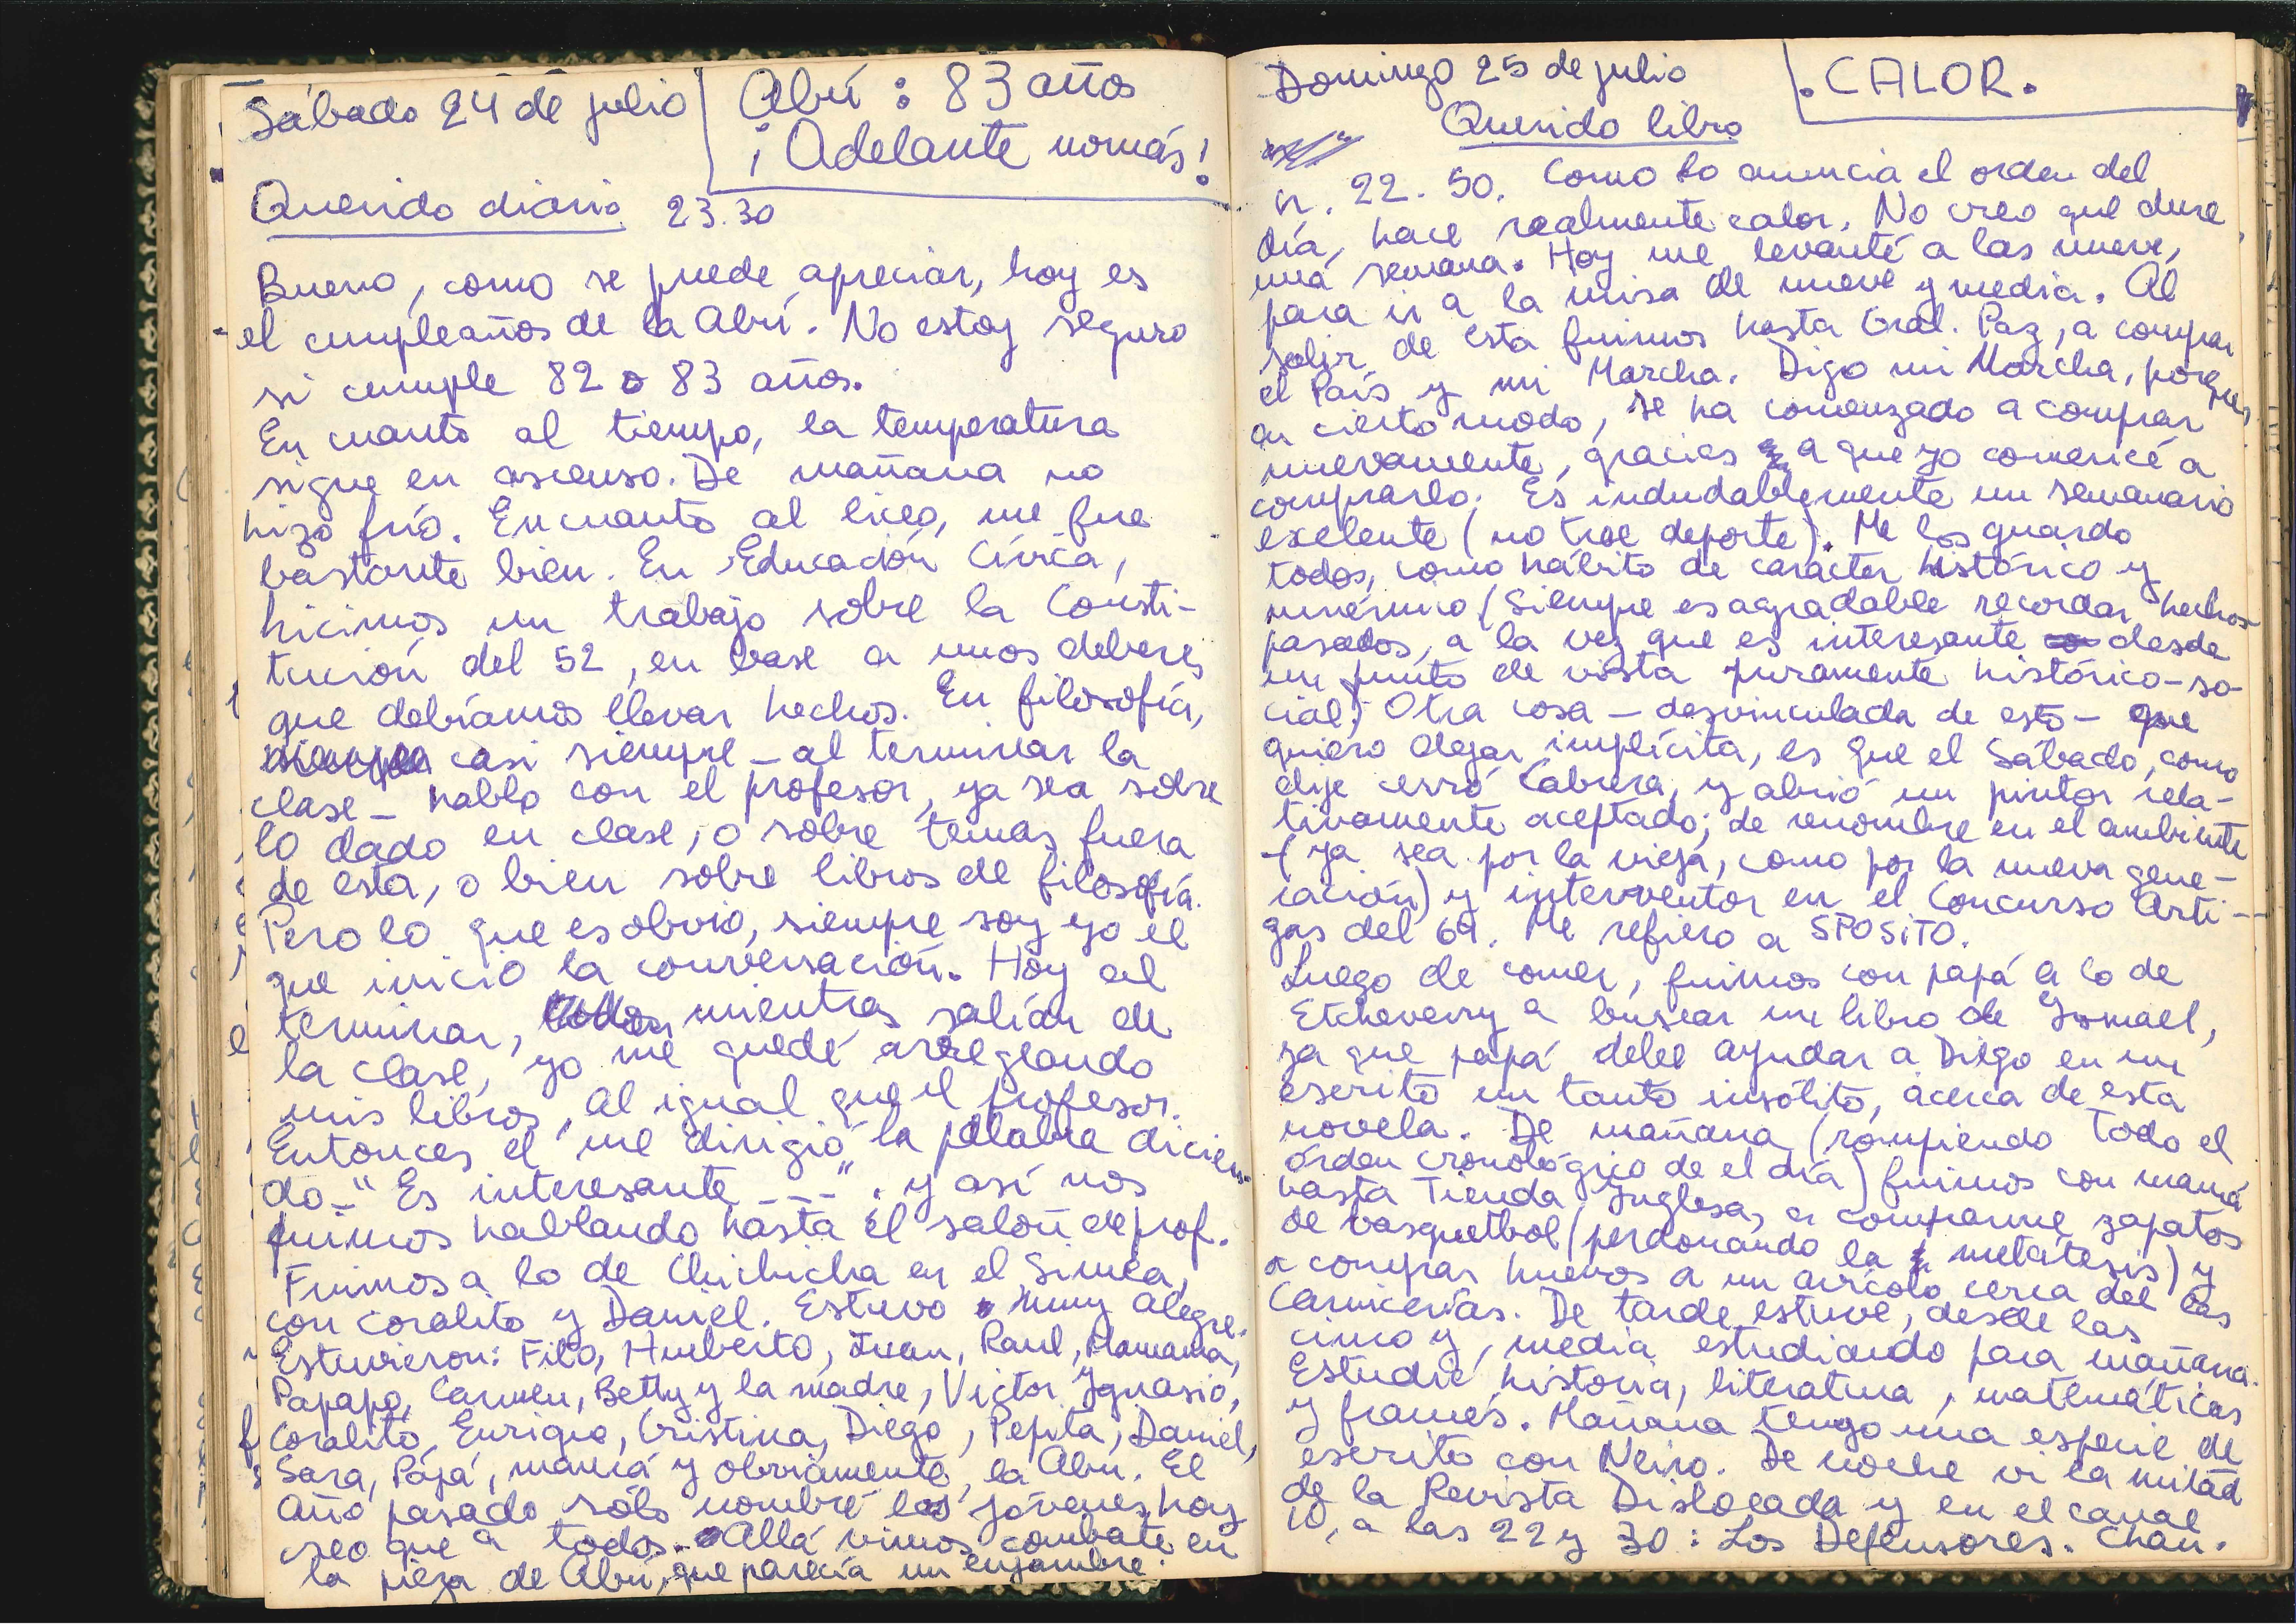 Sábado 24 de julio
Abú : 83 años
¡Adelante nomás!
Querido diario 23.30
Bueno, como se puede apreciar, hoy es
el cumpleaños de la Abú. No estoy seguro
si cumple 82 o 83 años.
En cuanto al tiempo, la temperatura
sigue en ascenso. De mañana no
hizo frío. En cuanto al liceo, me fue
bastante bien. En Educación Cívica,
hicimos un trabajo sobre la Consti-
tución del 52, en base a unos deberes
que debíamos llevar hechos. En filosofía,
casi siempre - al terminar la
clase - hablo con el profesor, ya sea sobre
lo dado en clase, o sobre temas fuera
de esta, o bien sobre libros de filosofía.
Pero lo que es obvio, siempre soy yo el
que inicio la conversación. Hoy al
terminar, mientras salían de
la clase, yo me quedé arreglando
mis libros, al igual que el profesor.
Entonces el me dirigió la palabra dicien-
do - "Es interesante - - -". y así nos
fuimos hablando hasta el salón de prof.
Fuimos a lo de Chichicha en el Simca,
con Coralito y Daniel. Estuvo muy alegre.
Estuvieron: Filo, Humberto, Juan, Raul, Mamama,
Papapo, Carmen, Betty y la madre, Victor Ygnasio,
Coralito, Enrique, Cristina, Diego, Pepita, Daniel,
Sara, Papá, mamá y obviamente, la Abú. El
año pasado sólo nombré los jóvenes, hoy
creo que a todos. Allá vimos combate en
la pieza de Abú, que parecía un enjambre.
Domingo 25 de julio
.CALOR.
Querido libro
h. 22.50. Como lo anuncia el orden del
día, hace realmente calor. No creo que dure
una semana. Hoy me levanté a las nueve,
para ir a la misa de nueve y media. Al
salir de esta fuimos hasta Gral. Paz, a comprar
el País y mi Marcha. Digo mi Marcha, porque,
en cierto modo, se ha comenzado a comprar
nuevamente, gracias a que yo comencé a
comprarlo. Es indudablemente un semanario
exelente (no trae deporte). Me los guardo
todos, como hábito de carácter histórico y
(Siempre es agradable recordar hechos
pasados, a la vez que es interesante desde
un punto de vista puramente histórico-so-
cial.) Otra cosa - desvinculada de esto - que
quiero dejar implícita, es que el Sábado, como
dije cerró Cabrera, y abrió un pintor rela-
tivamente aceptado; de renombre en el ambiente
(ya sea por la vieja, como por la nueva gene-
ración) y interventor en el Concurso Arti-
gas del 69. Me refiero a SPOSiTO.
Luego de comer, fuimos con papá a lo de
Etcheverry a buscar un libro de Ysmael,
ya que papá debe ayudar a Diego en un
escrito un tanto insólito, acerca de esta
novela. De mañana (rompiendo todo el
órden cronológico de el día) fuimos con mamá
hasta Tienda Inglesa, a comparme zapatos
de basquetbol (perdonando la metátesis) y
a compras huevos a un avícola cerca del las
Carnicerías. De tarde estuve, desde las
cinco y media estudiando para mañana.
Estudié historia, literatura, matemáticas
y francés. Mañana tengo una espece de
escrito con Neiro. De noche vi la mitad
de la Revista Dislocada y en el canal
10, a las 22 y 30: Los Defensores. Chau.